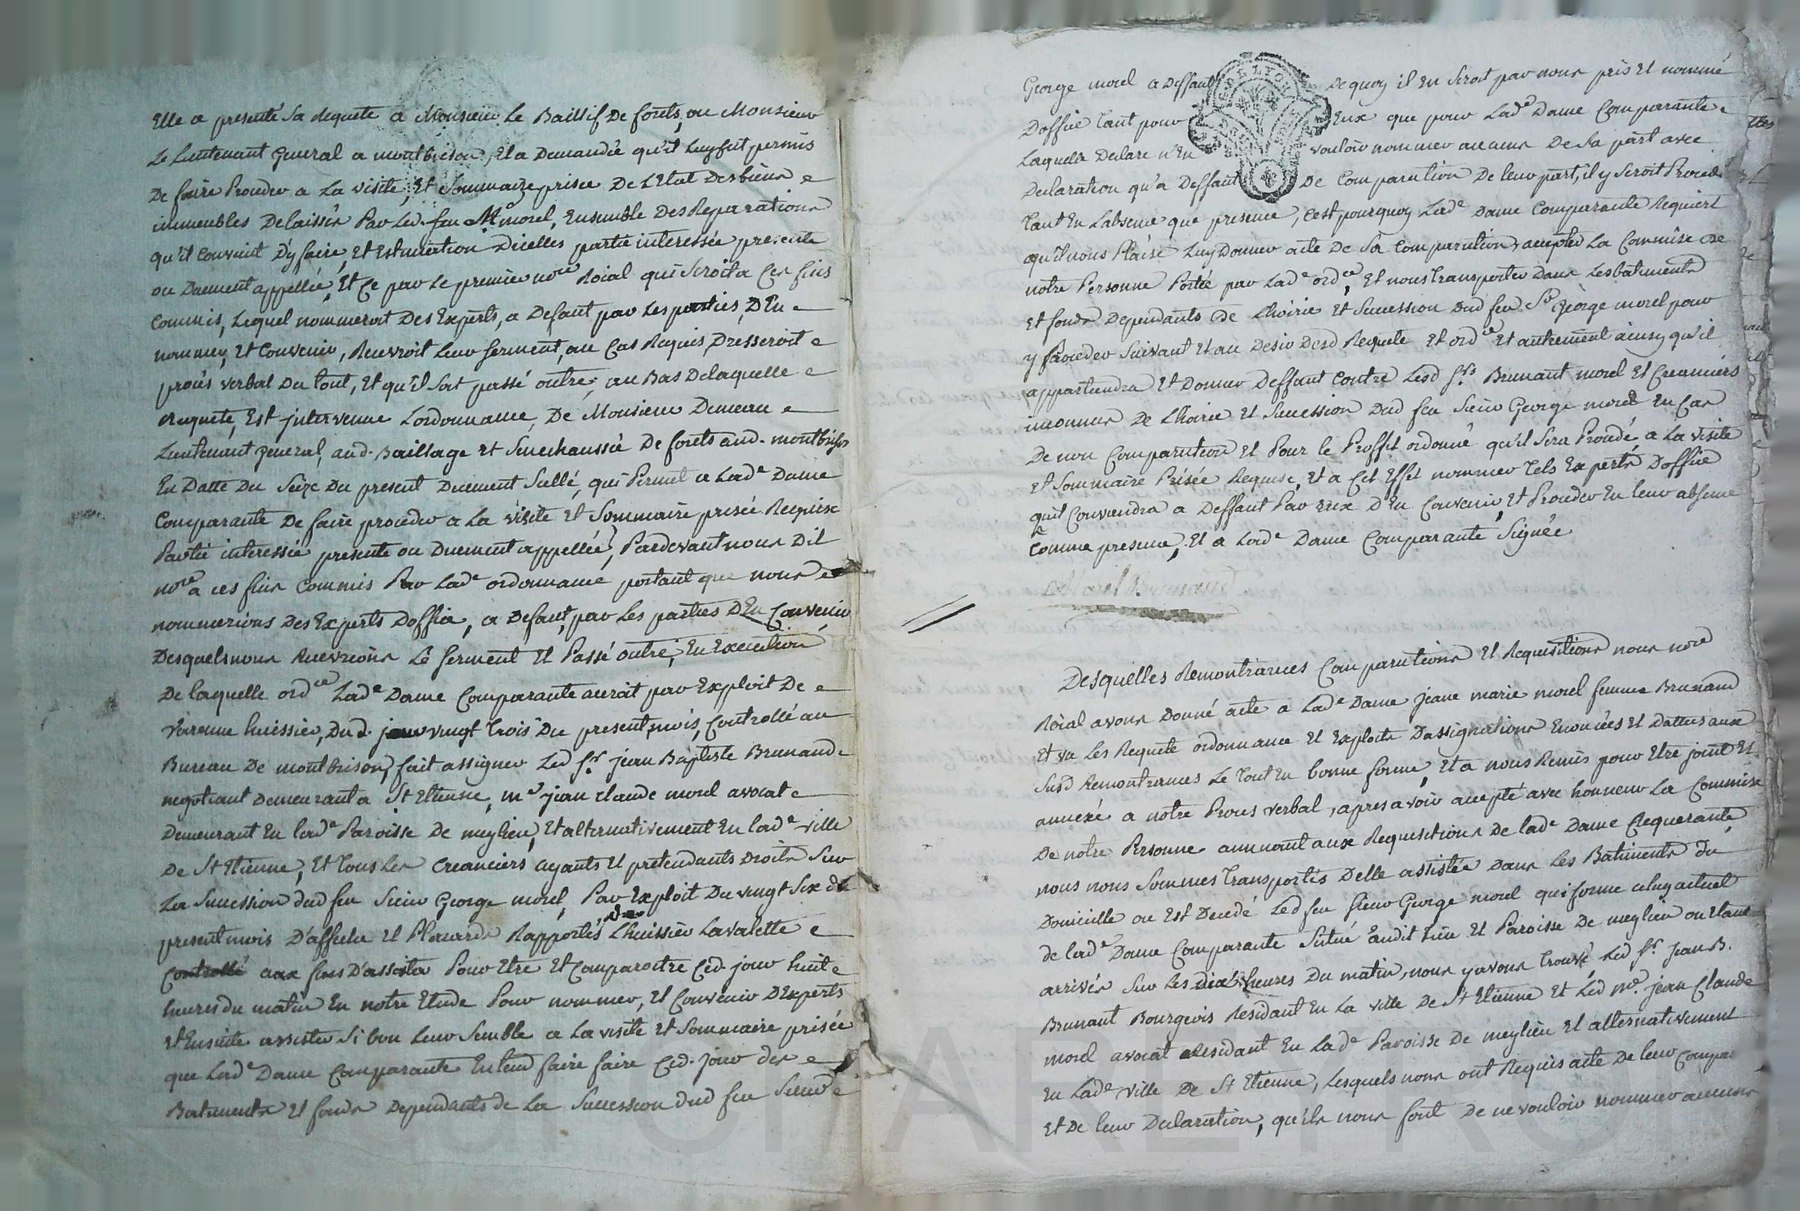 Elle a presenté sa requete a Monsieur Le Baillif De forets, ou Monsieur
Le Lieutenant General a montbrison, Et a Demandée qu'il luy fut permis
De faire Proceder a La visite, Et Sommaire prisee De L'Etat Des biens
immeubles Delaissés Par Led. feu Mr. morel, Ensemble Des Reparations
qu'il Convient D'y faire, Et Estimation D'icelles partie interessée presente
ou Duement appellée, Et Ce par Le premier nore Roial qui Seroit a Ces fins
Commis, Lequel nommeroit Des Experts, a Defaut par Les parties, D'En
nommer, Et Convenir, Recevroit Leur serment, au Cas Requis, Dresseroit
procés verbal Du tout, Et qu'il soit passé outre; au Bas De laquelle
Requete, Est intervenue L'ordonnance, De Monsieur Demeau
Lieutenant general, aud. Baillage et Senechaussée De forets aud. montbrison
En Datte Du Seize Du present Duement Scellé, qui Permet a Lade Dame
Comparante De faire proceder a La visite Et Sommaire prisée Requise
Partie interessée presente ou Duement appellée, Pardevant nous Dit
nore a ces fins Commis Par Lade ordonnance portant que nous
nommerions Des Experts D'office, a Defaut, par Les parties D'En Convenir
Desquels nous Recevrions Le serment Et Passé outre, En Execution
De laquelle ordce Lade Dame Comparante auroit par Exploit De
Varenne huissier, Dud. jour vingt trois Du present mois, Controllé au
Bureau De montbrison, fait assigner Led sr. jean Baptiste Brunand
negotiant Demeurant a St Etienne, me jean Claude morel avocat
Demeurant En lade Paroisse De meylieu, Et alternativement En lade ville
De St Etienne, Et tous Les Creanciers ayants Et pretendants Droits Sur
La Succession dud feu Sieur George morel, Par Exploit Du vingt Six du
present mois D'affiche Et Placards Rapportés De L'huissier Lavalette
Controllé aux fins D'assister Pour Etre Et Comparoitre Ced. jour huit
heures du matin En notre Etude Pour nommer, Et Convenir D'Experts
Et Ensuite assister Si bon Leur Semble a La visite Et Sommaire prisée
que Lade Dame Comparante Entend faire faire Ced. jour des
Batiments Et fonds Dependants de La Succession dud feu Sieur
George morel a Deffaut De quoy il En Seroit par nous pris Et nommé
D'office tant pour Eux que pour Lade Dame Comparante
Laquelle Declare n'En vouloir nommer aucun De Sa part avec
Declaration qu'a Deffaut De Comparution De leur part, il y Seroit Procedé
tant En L'absence que presence, C'est pourquoy Lade Dame Comparante Requiert
qu'il nous Plaise Luy Donner acte De Sa Comparution, accepter La Commise De
notre Personne Portée par Lade ordce, Et nous transporter Dans Les batiments
Et fonds Dependants De L'hoirie Et Succession Dud feu Sr George morel pour
y Proceder Suivant Et au Desir Desd Requete Et ordce Et autrement ainsy qu'il
appartiendra Et Donner Deffaut Contre Lesd srs Brunant morel Et Creanciers
inconnus De L'hoirie Et Succession Dud feu Sieur George morel En Cas
De non Comparution Et Pour le Proffit ordonné qu'il Sera Procedé a La visite
Et Sommaire Prisée Requise, Et a Cet Effet nommer tels Experts D'office
qu'il Conviendra a Deffaut Par Eux D'En Convenir, Et Proceder En leur absence
Comme presence, Et a Lade Dame Comparante Signée
Morel Brunand
Desquelles Remontrances Comparutions Et Requisitions nous nore
Roial avons Donné acte a Lade Dame jeane marie morel femme Brunand
Et vu Les Requete ordonnance Et Exploits D'assignations Enoncées Et Dattés aux
Susd Remontrances Le tout En bonne forme, Et a nous Remis pour Etre joint Et
annexé a notre Procés verbal, apres avoir accepté avec honneur La Commise
De notre Personne annuant aux Requisitions De lade Dame Requerante,
nous nous Sommes transportés D'elle assistée Dans Les Batiments Du
Domicille ou Est Decedé Led feu sieur George morel qui forme celuy actuel
de lade Dame Comparante Situé audit Lieu Et Paroisse De meylieu ou Etant
arrivés Sur Les dix heures Du matin, nous y avons trouvé Led sr. Jean B.
Brunant Bourgeois Residant En La ville De St Etienne Et Led me. jean Claude
morel avocat Residant En Lade Paroisse De meylieu Et alternativement
En Lade ville De St Etienne, Lesquels nous ont Requis acte De leur Compa
Et De leur Declaration, qu'ils nous font De ne vouloir nommer aucuns